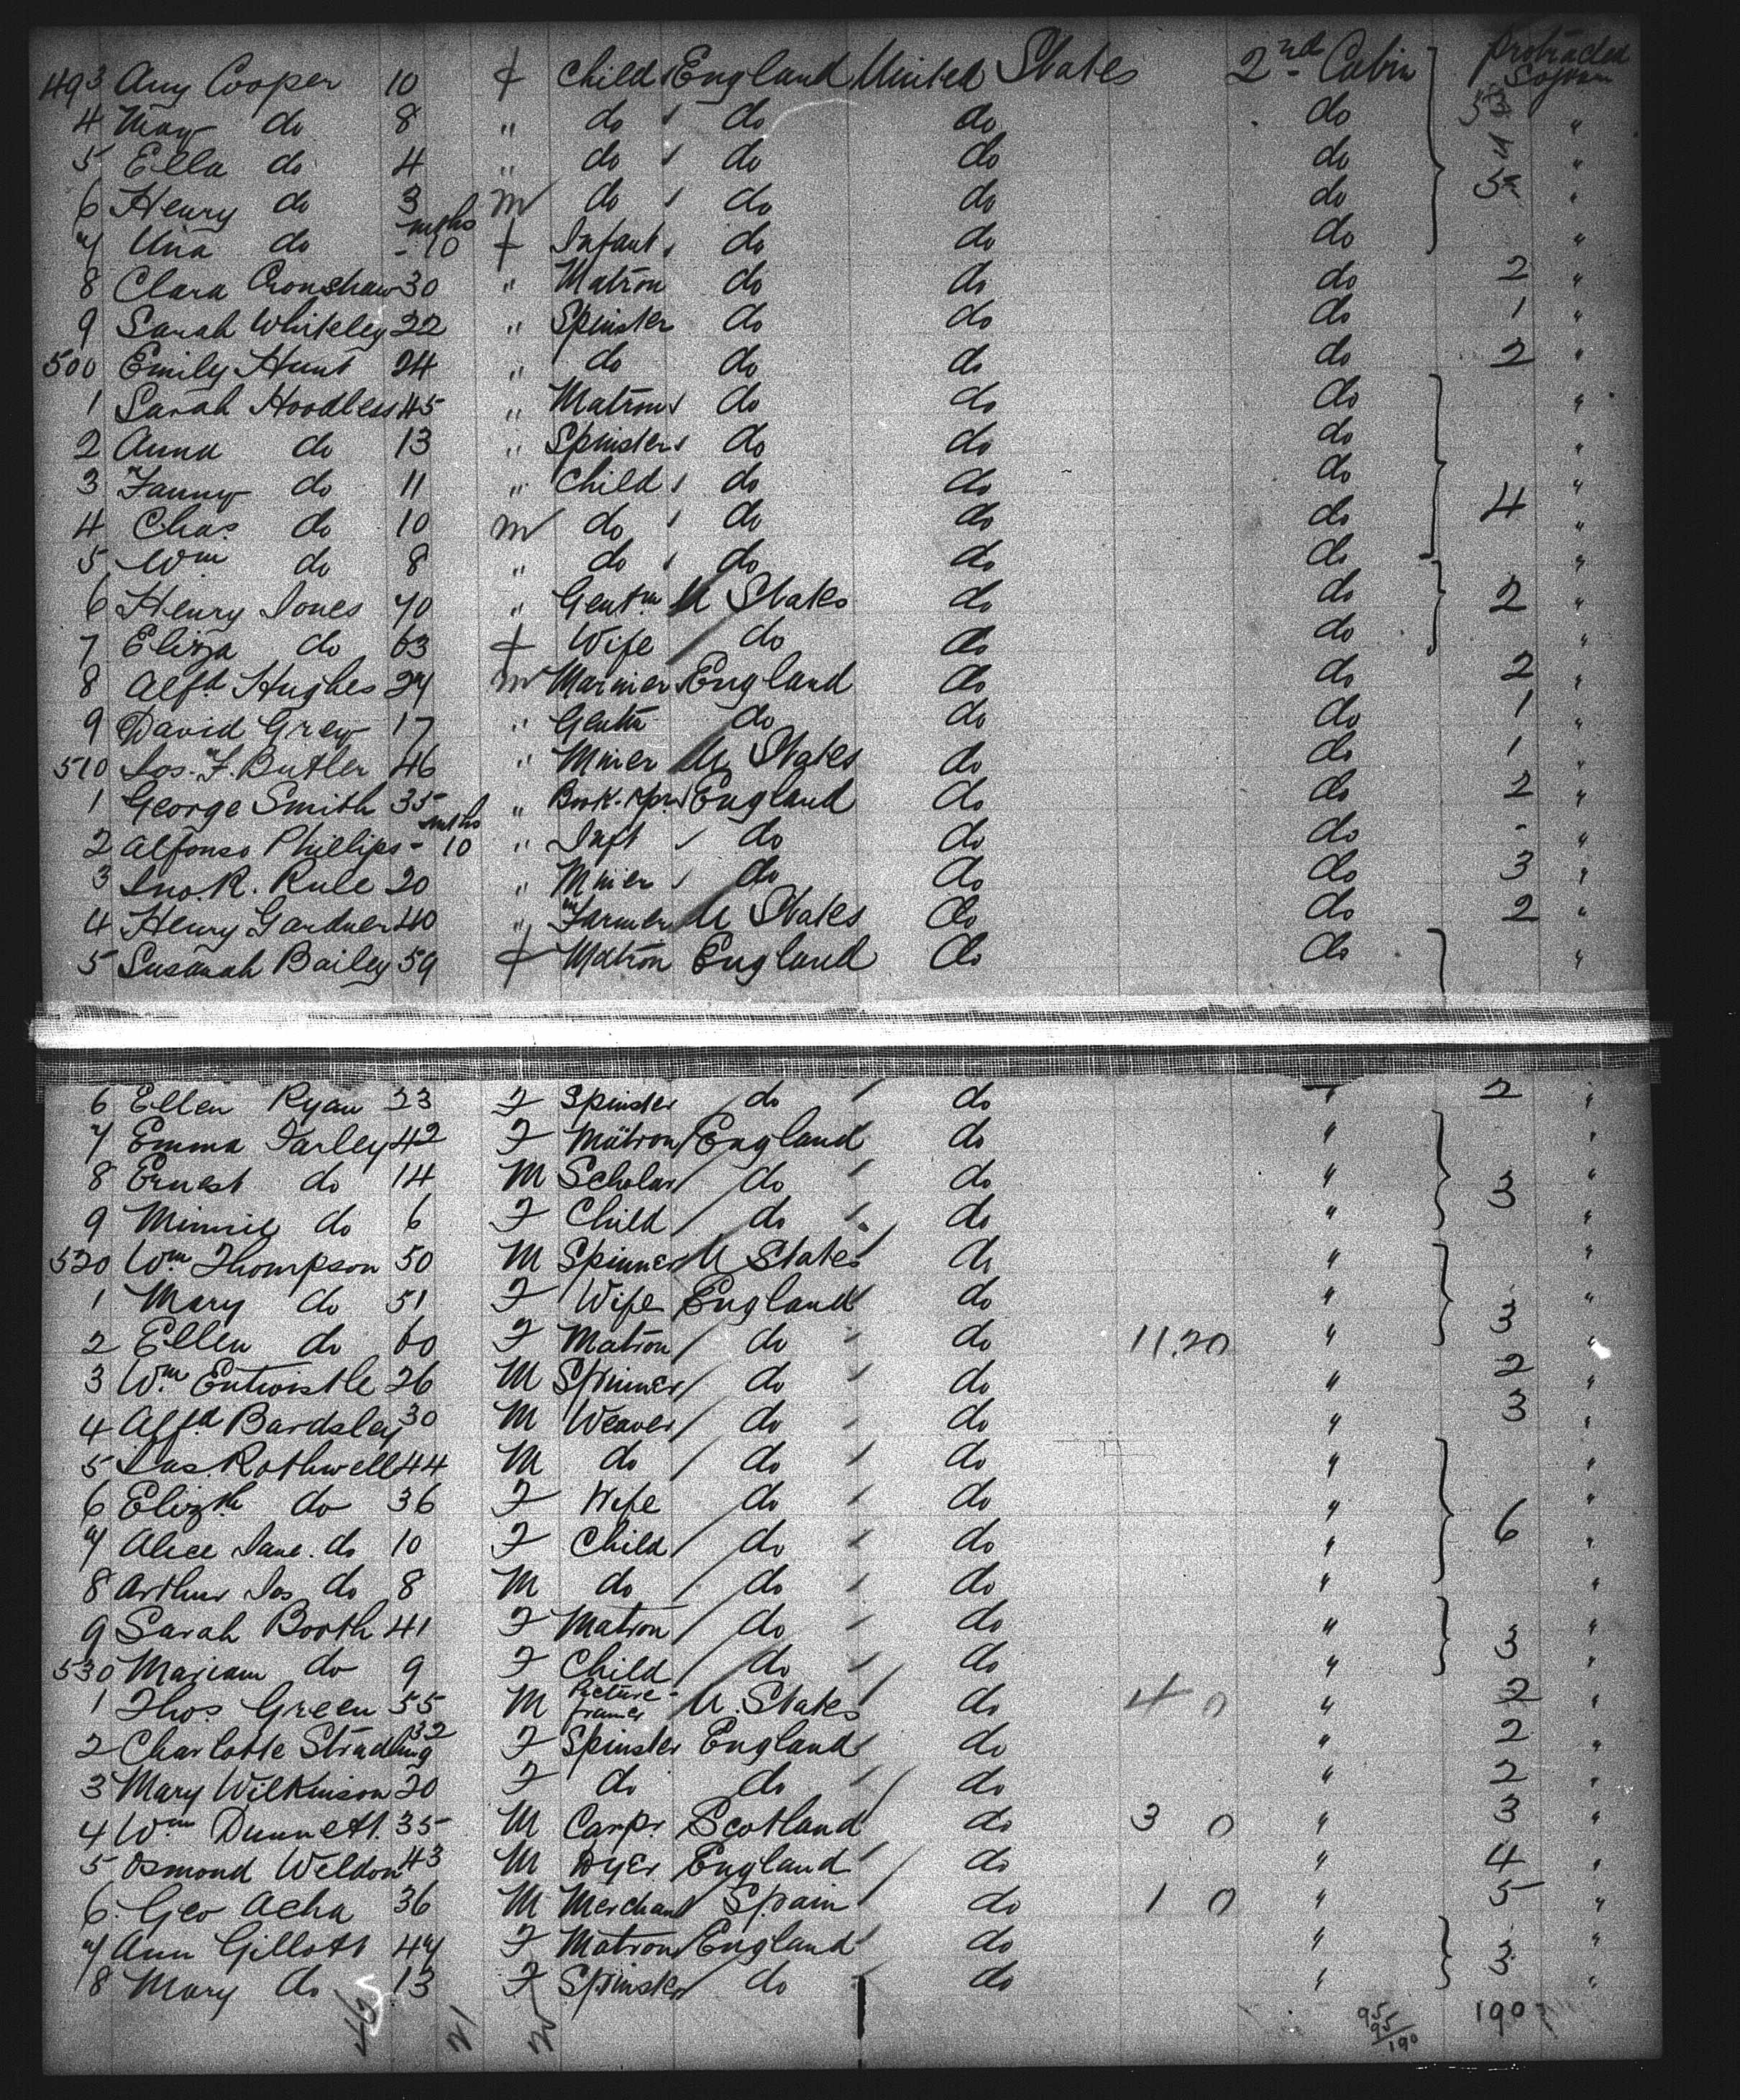 493 Amy Cooper 10 f Child England United States 2nd Cabin protracted Sojourn
4 May do 8 " do do do do "
5 Ella do 4 " do do do do "
6 Henry do 3 m do do do do "
7 Una do mths - 10 f Infant do do do "
8 Clara Cronshaw 30 " Matron do do do 2 "
9 Sarah Whiteley 22 " Spinster do do do 1 "
500 Emily Hunt 24 " do do do do 2 "
1 Sarah Hoodless 45 " Matron do do do "
2 Anna do 13 " Spinster do do do "
3 Fanny do 11 " Child do do do "
4 Chas. do 10 m do do do do 4 "
5 Wm do 8 " do do do do "
6 Henry Jones 70 " Gentm U States do do 2 "
7 Eliza do 63 f Wife do do do "
8 Alfd Hughes 27 m Mariner England do do 2 "
9 David Grey 17 " Gentm do do do 1 "
510 Jos. F. Butler 46 " Miner U States do do 1 "
1 George Smith 35 " Book-kpr England do do 2 "
2 Alfonso Phillips mths - 10 " Inft do do do - "
3 Jno. R. Rule 20 " Miner do do do 3 "
4 Henry Gardner 40 " Farmer U States do do 2 "
5 Susanah Bailey 59 f Matron England do do "
6 Ellen Ryan 23 F Spinster do do " 2 "
7 Emma Farley 42 F Matron England do " "
8 Ernest do 14 M Scholar do do " 3 "
9 Minnie do 6 F Child do do " "
520 Wm Thompson 50 M Spinner U States do " "
1 Mary do 51 F Wife England do " 3 "
2 Ellen do 60 F Matron do do 11.20 " "
3 Wm Entwistle 26 M Spinner do do " 2 "
4 Alfd Bardsley 30 M Weaver do do " 3 "
5 Jas. Rothwell 44 M do do do " "
6 Elizth do 36 F Wife do do " "
7 Alice Jane. do 10 F Child do do " 6 "
8 Arthur Jas do 8 M do do do " "
9 Sarah Booth 41 F Matron do do " "
530 Mariam do 9 F Child do do " 3 "
1 Thos Green 55 M Picture-framer U. States do 4 0 " 2 "
2 Charlotte Stradling 32 F Spinster England do " 2 "
3 Mary Wilkinson 20 F do do do " 2 "
4 Wm Dunnett. 35 M Carpr Scotland do 3 0 " 3 "
5 Osmond Weldon 43 M Dyer England do " 4 "
6. Geo Acha 36 M Merchant Spain do 1 0 " 5 "
7 Ann Gillott 47 F Matron England do " "
8 Mary do 13 F Spinster do do " 3 "
95
95
190
190